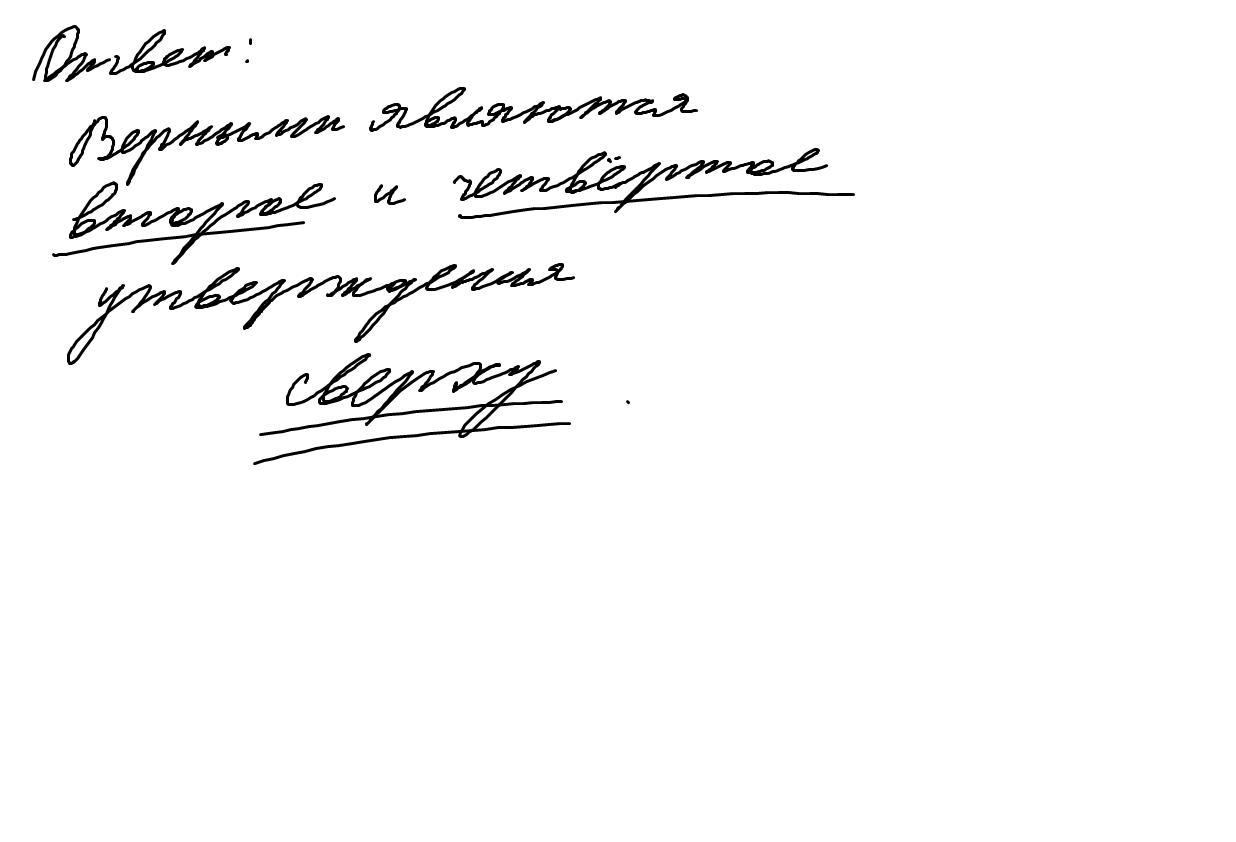 Ответ:
Верными являются
второе и четвёртое
утверждения
сверху.